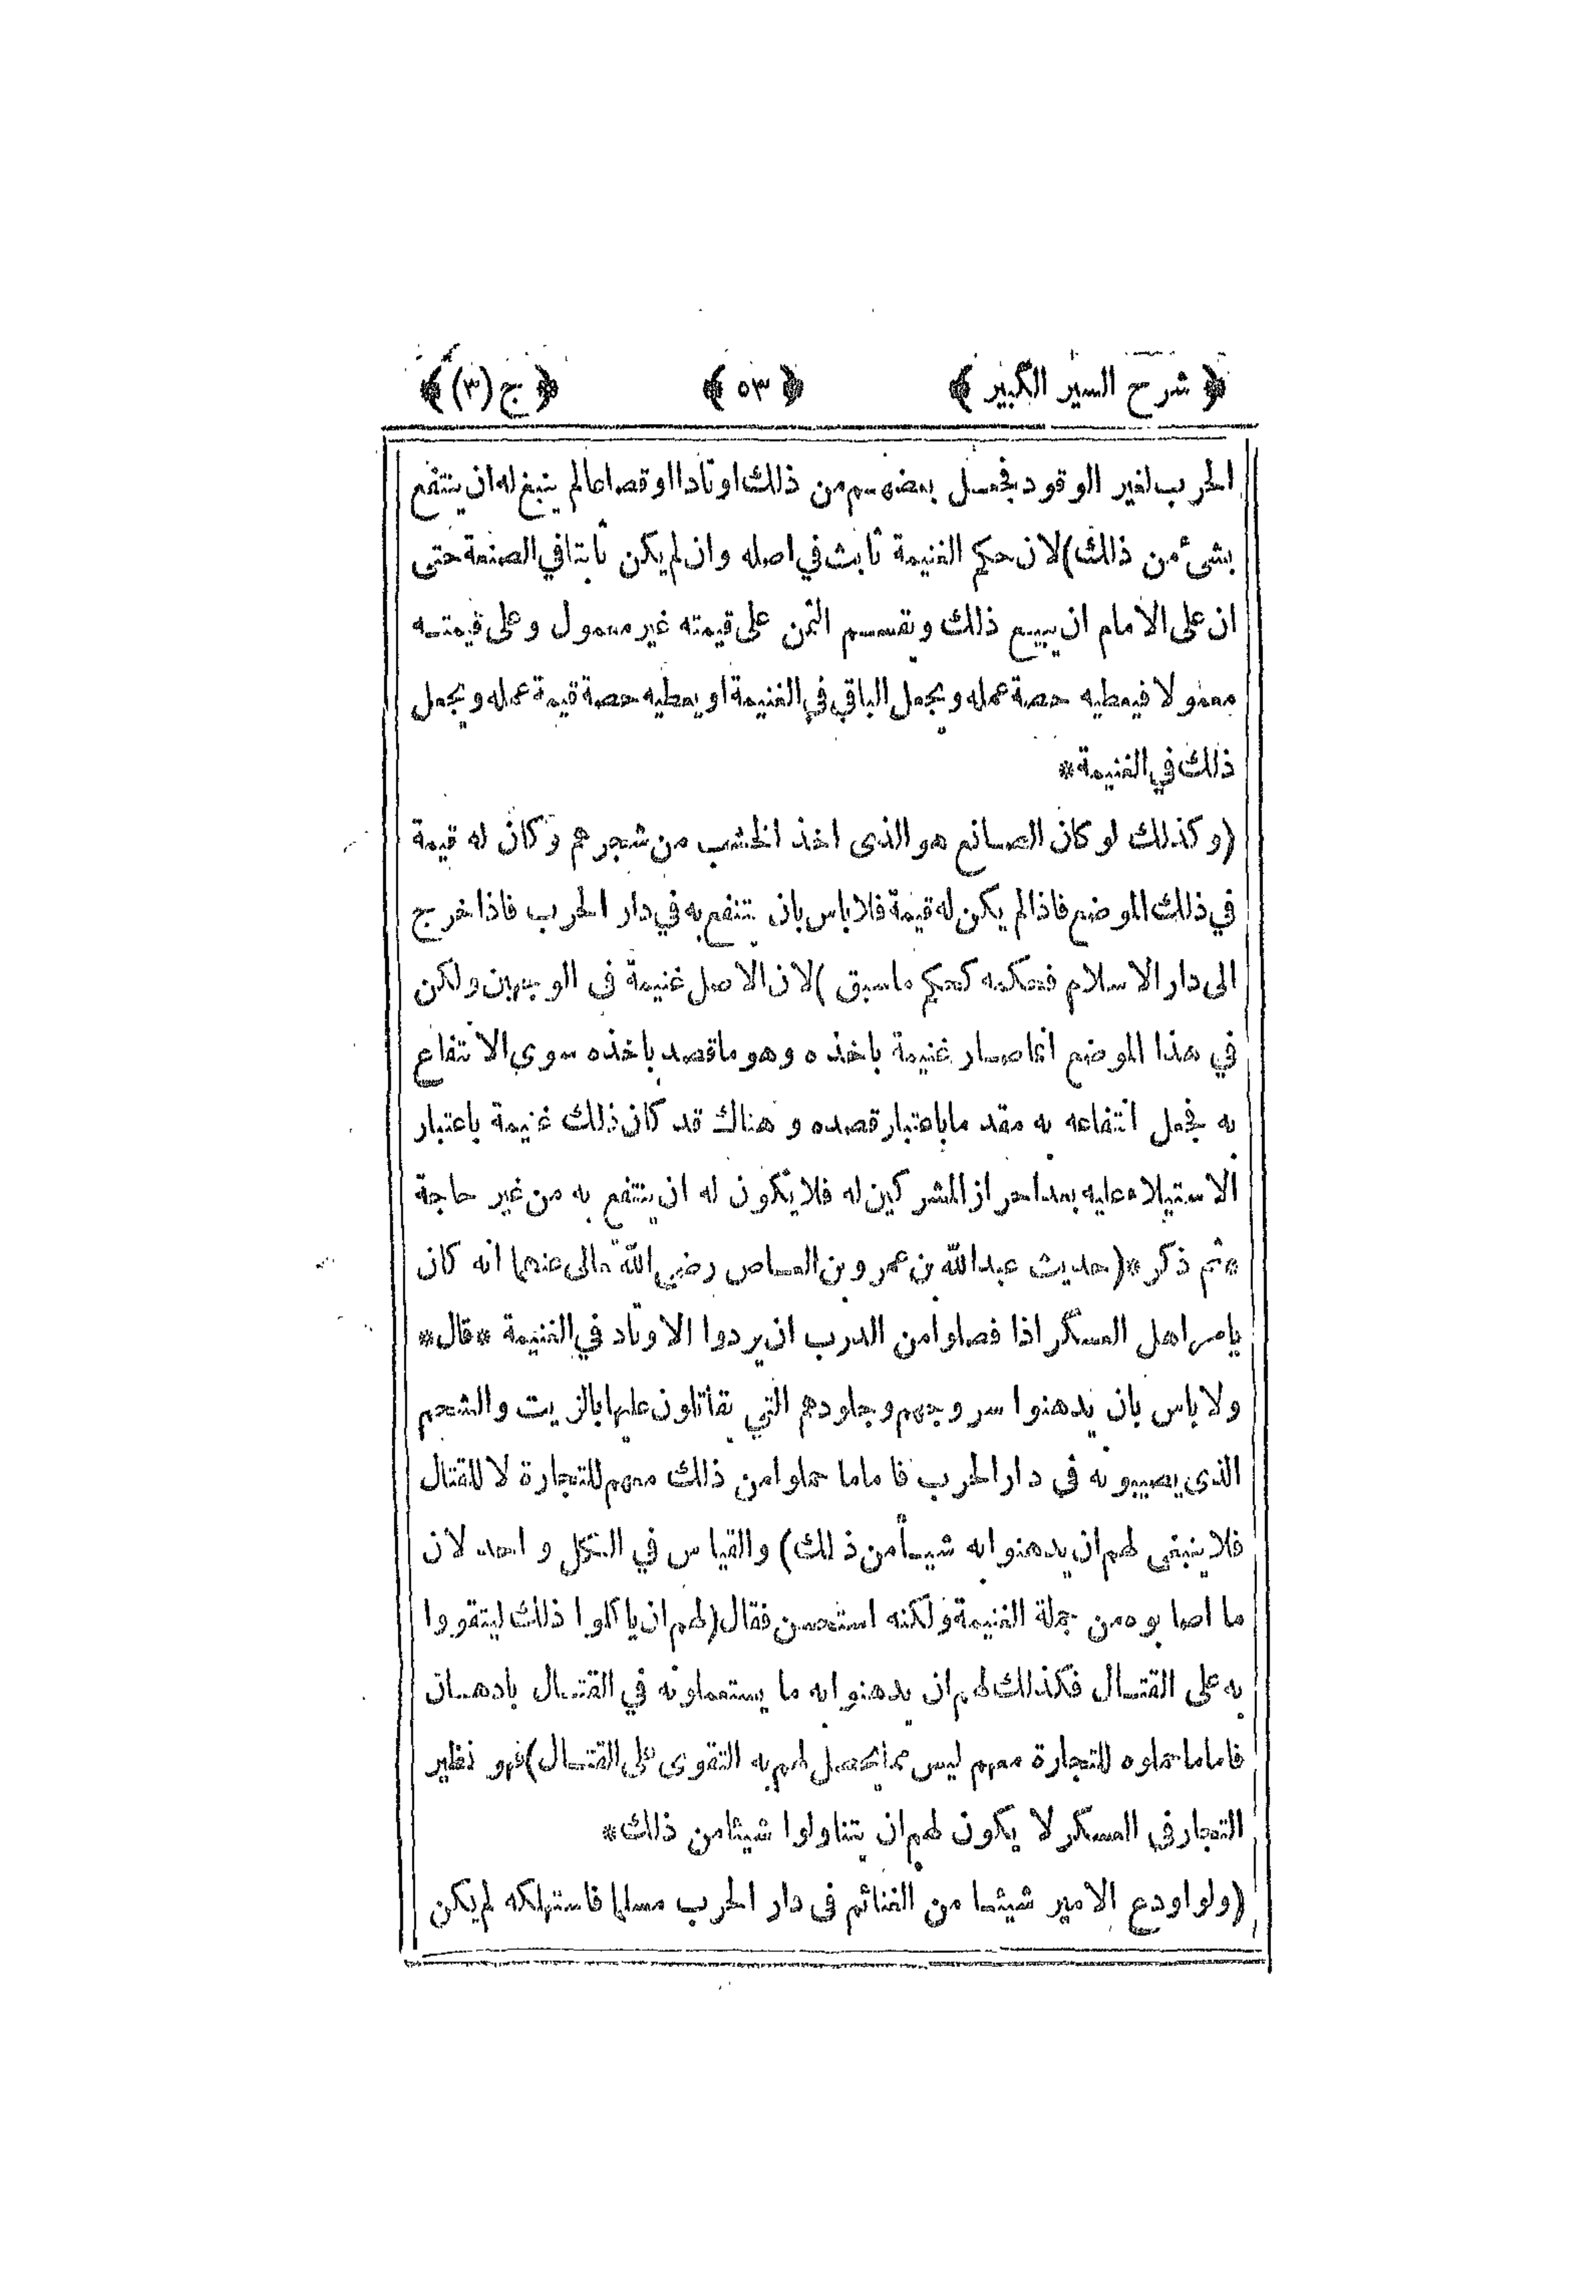 ﴿ شرح السير الكبير ﴾ ﴿ ٥٣ ﴾ ﴿ ج (٣) ﴾
الحرب لغير الوقود فجعل بعضهم من ذلك اوتادا او قصاعا لم ينبغ له ان ينتفع
بشئ من ذلك) لان حكم الغنيمة ثابت في اصله وان لم يكن ثابتا في الصنعة حتى
ان على الامام ان يبيع ذلك ويقسم الثمن على قيمته غير معمول وعلى قيمته
معمولا فيعطيه حصة عمله ويجعل الباقي في الغنيمة او يعطيه حصة قيمة عمله ويجعل
ذلك في الغنيمة *
(وكذلك لو كان الصانع هو الذى اخذ الخشب من شجرهم وكان له قيمة
في ذلك الموضع فاذا لم يكن له قيمة فلا باس بان ينتفع به في دار الحرب فاذا خرج
الى دار الاسلام فحكمه كحكم ماسبق) لان الاصل غنيمة فى الوجهين ولكن
في هذا الموضع انما صار غنيمة باخذه وهو ماقصد باخذه سوى الانتفاع
به فجعل انتفاعه به مقدما باعتبار قصده وهناك قد كان ذلك غنيمة باعتبار
الاستيلاء عليه بعد احراز المشركين له فلا يكون له ان ينتفع به من غير حاجة
* ثم ذكر * (حديث عبد الله بن عمرو بن العاص رضي الله تعالى عنهما انه كان
يامر اهل العسكر اذا فصلوا من الدرب ان يردوا الاوتاد في الغنيمة * قال *
ولا باس بان يدهنوا سروجهم وجلودهم التي يقاتلون عليها بالزيت والشحم
الذى يصيبونه فى دار الحرب فاما ما حملوا من ذلك معهم للتجارة لا للقتال
فلا ينبغى لهم ان يدهنوا به شيأ من ذلك) والقياس في الكل واحد لان
ما اصابوه من جملة الغنيمة ولكنه استحسن فقال (لهم ان ياكلوا ذلك ليتقووا
به على القتال فكذلك لهم ان يدهنوا به ما يستعملونه في القتال بادهان
فاما ما حملوه للتجارة معهم ليس مما يحصل لهم به التقوى على القتال) فهو نظير
التجار فى العسكر لا يكون لهم ان يتناولوا شيئا من ذلك *
(ولو اودع الامير شيئا من الغنائم فى دار الحرب مسلما فاستهلكه لم يكن